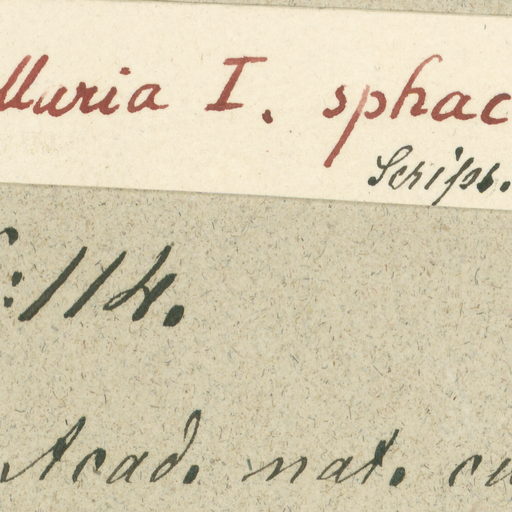 lluria I. sphac
Script.
:114.
Acad. nat. cu